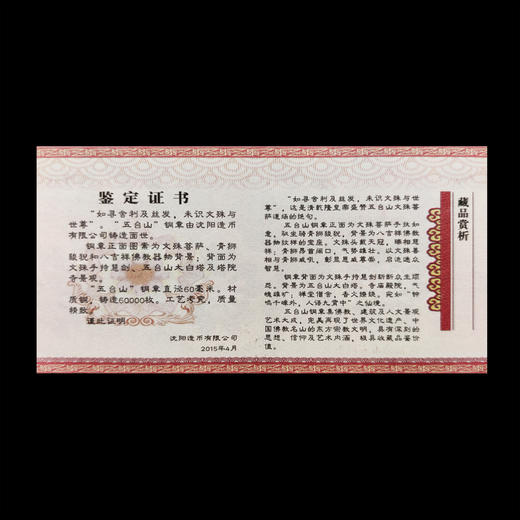 鉴定证书
“如寻舍利及丝发，未识文殊与
世尊”。“五台山”铜章由沈阳造币
有限公司铸造面世。
铜章正面图素为文殊菩萨、青狮
狻猊和八吉祥佛教器物背景；背面为
文殊手持慧剑、五台山大白塔及塔院
寺景观。
“五台山”铜章直径60毫米。材
质铜，铸造60000枚。工艺考究，质量
精致。
谨此证明
沈阳造币有限公司
2015年4月
藏品赏析
“如寻舍利及丝发，未识文殊与世
尊”，这是清乾隆皇帝盛赞五台山文殊菩
萨道场的绝句。
五台山铜章正面为文殊菩萨手扶如
意，驭坐骑青狮狻猊，背景为八吉祥佛教
器物纹样的宝座。文殊头戴天冠，臻相慈
祥；青狮昂首阔口，气势雄壮。以文殊菩
相与青狮威吼，彰显恩威宽带，启迪遗众
智慧。
铜章背面为文殊手持慧剑斩断众生烦
恼。背景为五台山大白塔。寺庙殿院，气
魄雄旷；禅堂僧舍，香火缭绕。宛如“钟
鸣千嶂外，人语九霄中”之仙境。
五台山铜章集佛教、建筑及人文景观
艺术大成，完美再现了世界文化遗产、中
国佛教名山的东方宗教文明，具有深刻的
思想、信仰及艺术内涵，极具收藏品鉴价
值。